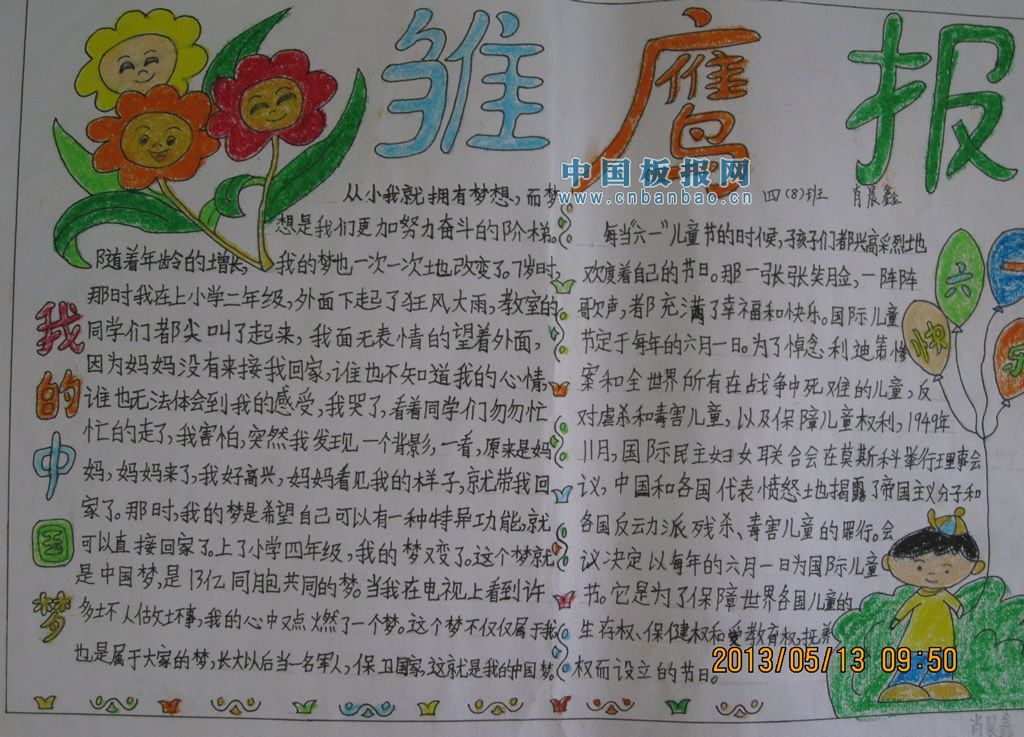 雏鹰报
中国板报网
www.cnbanbao.cn
四(8)班 肖晨鑫
我的中国梦
从小我就拥有梦想，而梦
想是我们更加努力奋斗的阶梯。
随着年龄的增长，我的梦也一次一次地改变了。7岁时，
那时我在上小学二年级，外面下起了狂风大雨，教室的
同学们都尖叫了起来，我面无表情的望着外面，
因为妈妈没有来接我回家，谁也不知道我的心情，
谁也无法体会到我的感受，我哭了，看着同学们匆匆忙
忙的走了，我害怕，突然我发现一个背影，一看，原来是妈
妈，妈妈来了，我好高兴，妈妈看见我的样子，就带我回
家了。那时，我的梦是希望自己可以有一种特异功能，就
可以直接回家了。上了小学四年级，我的梦又变了。这个梦就
是中国梦，是13亿同胞共同的梦。当我在电视上看到许
多坏人做坏事，我的心中又点燃了一个梦。这个梦不仅仅属于我
也是属于大家的梦，长大以后当一名军人，保卫国家，这就是我的中国梦。
每当“六一”儿童节的时候，孩子们都兴高采烈地
欢度着自己的节日。那一张张笑脸，一阵阵
歌声，都充满了幸福和快乐。国际儿童
节定于每年的六月一日。为了悼念利迪策惨
案和全世界所有在战争中死难的儿童，反
对虐杀和毒害儿童，以及保障儿童权利，1949年
11月，国际民主妇女联合会在莫斯科举行理事会
议，中国和各国代表愤怒地揭露了帝国主义分子和
各国反动派残杀、毒害儿童的罪行。会
议决定以每年的六月一日为国际儿童
节。它是为了保障世界各国儿童的
生存权、保健权和受教育权，抚养
权而设立的节日。
六一快乐
2013/05/13 09:50
肖晨鑫